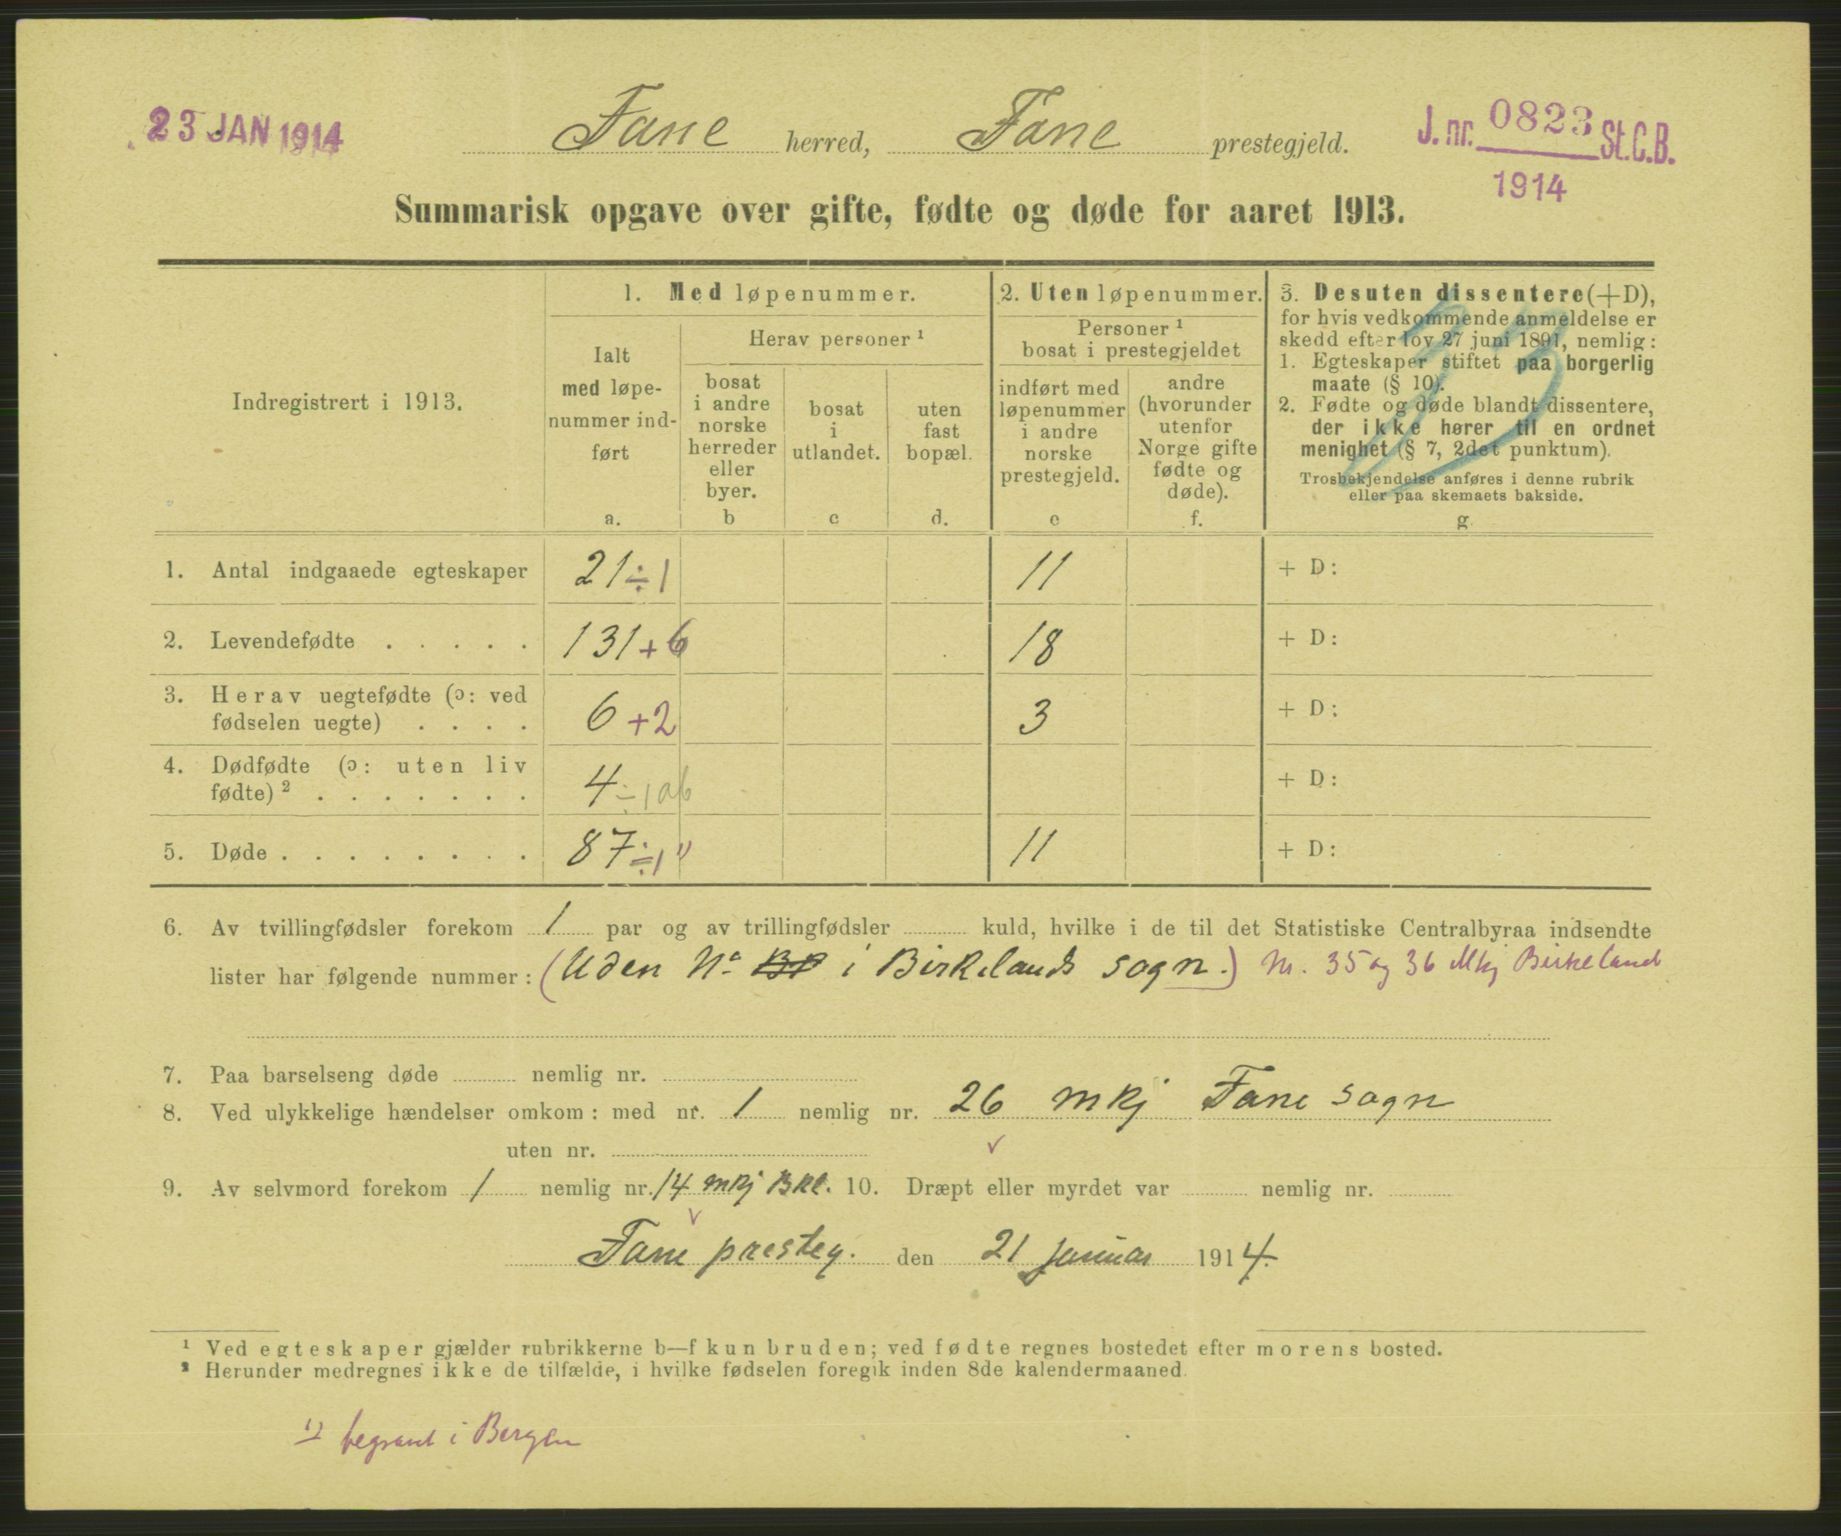 23 JAN 1914
Fane herred, Fane prestegjeld.
J. nr. 0823 St. C. B.
1914
Summarisk opgave over gifte, fødte og døde for aaret 1913.
Indregistrert i 1913.
1. Med løpenummer.
Ialt med løpenummer indført
a.
Herav personer ¹
bosat i andre norske herreder eller byer.
b
bosat i utlandet.
c
uten fast bopæl.
d.
2. Uten løpenummer.
Personer ¹ bosat i prestegjeldet
indført med løpenummer i andre norske prestegjeld.
e
andre (hvorunder utenfor Norge gifte fødte og døde).
f.
3. Desuten dissentere (+D),
for hvis vedkommende anmeldelse er
skedd efter lov 27 juni 1891, nemlig:
1. Egteskaper stiftet paa borgerlig
maate (§ 10).
2. Fødte og døde blandt dissentere,
der ikke hører til en ordnet
menighet (§ 7, 2det punktum).
Trosbekjendelse anføres i denne rubrik
eller paa skemaets bakside.
g
1. Antal indgaaede egteskaper 21 ÷ 1 11 + D:
2. Levendefødte . . . . . 131 + 6 18 + D:
3. Herav uegtefødte (ɔ: ved
fødselen uegte) . . . . 6 + 2 3 + D:
4. Dødfødte (ɔ: uten liv
fødte) ² . . . . . . . 4 ÷ 1 ab + D:
5. Døde . . . . . . . . 87 ÷ 1 ¹⁾ 11 + D:
6. Av tvillingfødsler forekom 1 par og av trillingfødsler kuld, hvilke i de til det Statistiske Centralbyraa indsendte
lister har følgende nummer: (Uden No i Birkelands sogn.) Nr. 35 og 36 Mkj Birkeland
7. Paa barselseng døde nemlig nr.
8. Ved ulykkelige hændelser omkom: med nr. 1 nemlig nr. 26 mkj Fane sogn
uten nr.
9. Av selvmord forekom 1 nemlig nr. 14 mkj Bkl. 10. Dræpt eller myrdet var nemlig nr.
Fane presteg. den 21 Januar 1914.
¹ Ved egteskaper gjælder rubrikkerne b—f kun bruden; ved fødte regnes bostedet efter morens bosted.
² Herunder medregnes ikke de tilfælde, i hvilke fødselen foregik inden 8de kalendermaaned.
¹⁾ begravet i Bergen